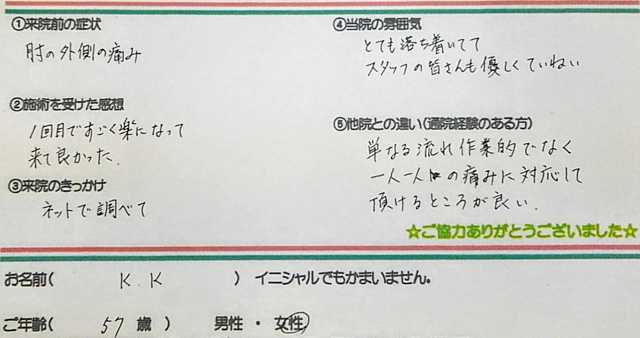 ①来院前の症状
肘の外側の痛み
②施術を受けた感想
1回目ですごく楽になって
来て良かった.
③来院のきっかけ
ネットで調べて
④当院の雰囲気
とても落ち着いてて
スタッフの皆さんも優しくていねい
⑤他院との違い(通院経験のある方)
単なる流れ作業的でなく
一人一人の痛みに対応して
頂けるところが良い.
☆ご協力ありがとうございました☆
お名前( K.K ) イニシャルでもかまいません。
ご年齢( 57 歳 ) 男性 ・ 女性